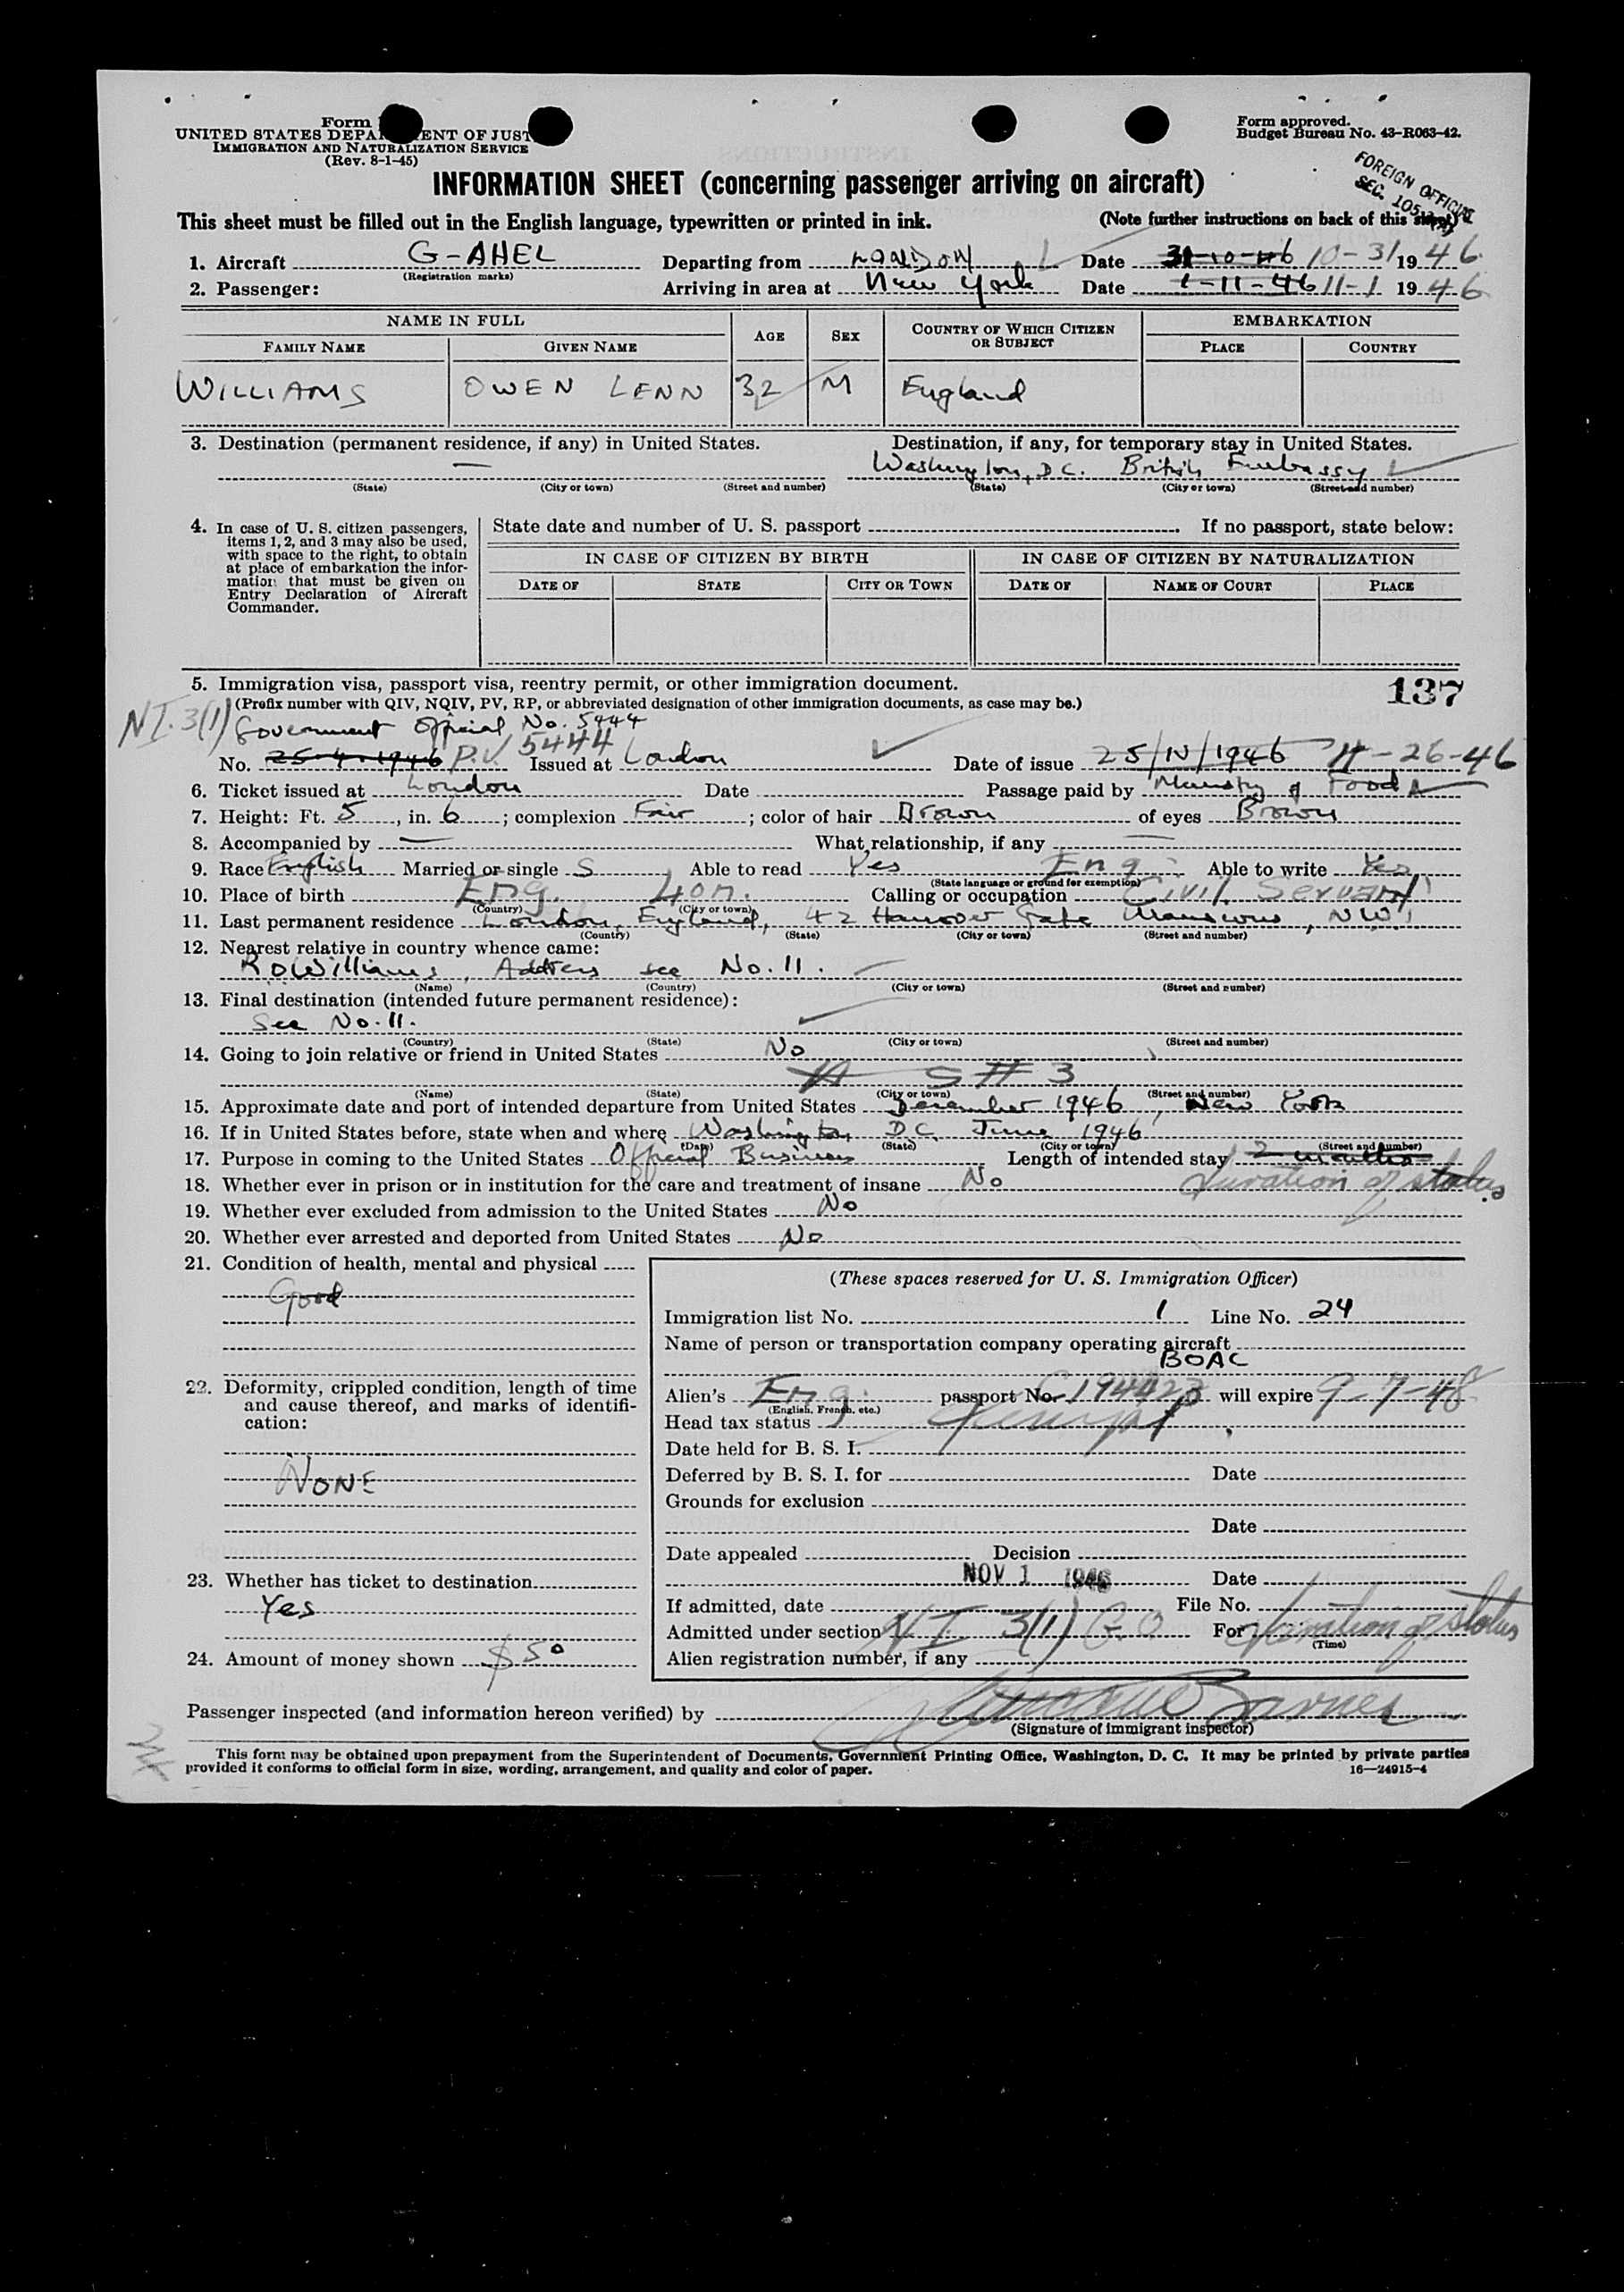 Form
UNITED STATES DEPA ENT OF JUST
IMMIGRATION AND NATURALIZATION SERVICE
(Rev. 8-1-45)
Form approved.
Budget Bureau No. 43-R063-42.
FOREIGN OFFICIAL
SEC. 105
INFORMATION SHEET (concerning passenger arriving on aircraft)
This sheet must be filled out in the English language, typewritten or printed in ink. (Note further instructions on back of this sheet)
1. Aircraft G-AHEL Departing from LONDON Date 31-10-46 10-31 19 46
(Registration marks)
2. Passenger: Arriving in area at New York Date 1-11-46 11-1 19 46
NAME IN FULL AGE SEX COUNTRY OF WHICH CITIZEN OR SUBJECT EMBARKATION
FAMILY NAME GIVEN NAME PLACE COUNTRY
WILLIAMS OWEN LENN 32 M England
3. Destination (permanent residence, if any) in United States. Destination, if any, for temporary stay in United States.
— Washington, D.C. British Embassy
(State) (City or town) (Street and number) (State) (City or town) (Street and number)
4. In case of U. S. citizen passengers, items 1, 2, and 3 may also be used, with space to the right, to obtain at place of embarkation the information that must be given on Entry Declaration of Aircraft Commander.
State date and number of U. S. passport . If no passport, state below:
IN CASE OF CITIZEN BY BIRTH IN CASE OF CITIZEN BY NATURALIZATION
DATE OF STATE CITY OR TOWN DATE OF NAME OF COURT PLACE
5. Immigration visa, passport visa, reentry permit, or other immigration document. 137
(Prefix number with QIV, NQIV, PV, RP, or abbreviated designation of other immigration documents, as case may be.)
N.I. 3(1) Government Official No. 5444
No. 25-4-1946 P.V. 5444 Issued at London Date of issue 25/IV/1946 4-26-46
6. Ticket issued at London Date Passage paid by Ministry of Food
7. Height: Ft. 5, in. 6; complexion Fair; color of hair Brown of eyes Brown
8. Accompanied by — What relationship, if any —
9. Race English Married or single S Able to read Yes Eng. Able to write Yes
(State language or ground for exemption)
10. Place of birth Eng. Lon. Calling or occupation Civil Servant
(Country) (City or town)
11. Last permanent residence London, England, 42 Hanover Gate Mansions, NW1
(Country) (State) (City or town) (Street and number)
12. Nearest relative in country whence came:
R O Williams, Address see No. 11.
(Name) (Country) (City or town) (Street and number)
13. Final destination (intended future permanent residence):
See No. 11.
(Country) (State) (City or town) (Street and number)
14. Going to join relative or friend in United States No
S # 3
(Name) (State) (City or town) (Street and number)
15. Approximate date and port of intended departure from United States December 1946, New York
16. If in United States before, state when and where Washington D.C. June 1946
(Date) (State) (City or town) (Street and number)
17. Purpose in coming to the United States Official Business Length of intended stay 2 months
duration of status
18. Whether ever in prison or in institution for the care and treatment of insane No
19. Whether ever excluded from admission to the United States No
20. Whether ever arrested and deported from United States No
21. Condition of health, mental and physical
Good
22. Deformity, crippled condition, length of time and cause thereof, and marks of identification:
NONE
23. Whether has ticket to destination
Yes
24. Amount of money shown $50
(These spaces reserved for U. S. Immigration Officer)
Immigration list No. 1 Line No. 24
Name of person or transportation company operating aircraft
BOAC
Alien's Eng. passport No. will expire 9-7-48
(English, French, etc.)
Head tax status exempt
Date held for B. S. I.
Deferred by B. S. I. for Date
Grounds for exclusion
Date
Date appealed Decision
NOV 1 1946 Date
If admitted, date File No.
Admitted under section N.I. 3(1) G.O For duration of status
(Time)
Alien registration number, if any
Passenger inspected (and information hereon verified) by Barnes
(Signature of immigrant inspector)
This form may be obtained upon prepayment from the Superintendent of Documents, Government Printing Office, Washington, D. C. It may be printed by private parties
provided it conforms to official form in size, wording, arrangement, and quality and color of paper. 16—24915-4